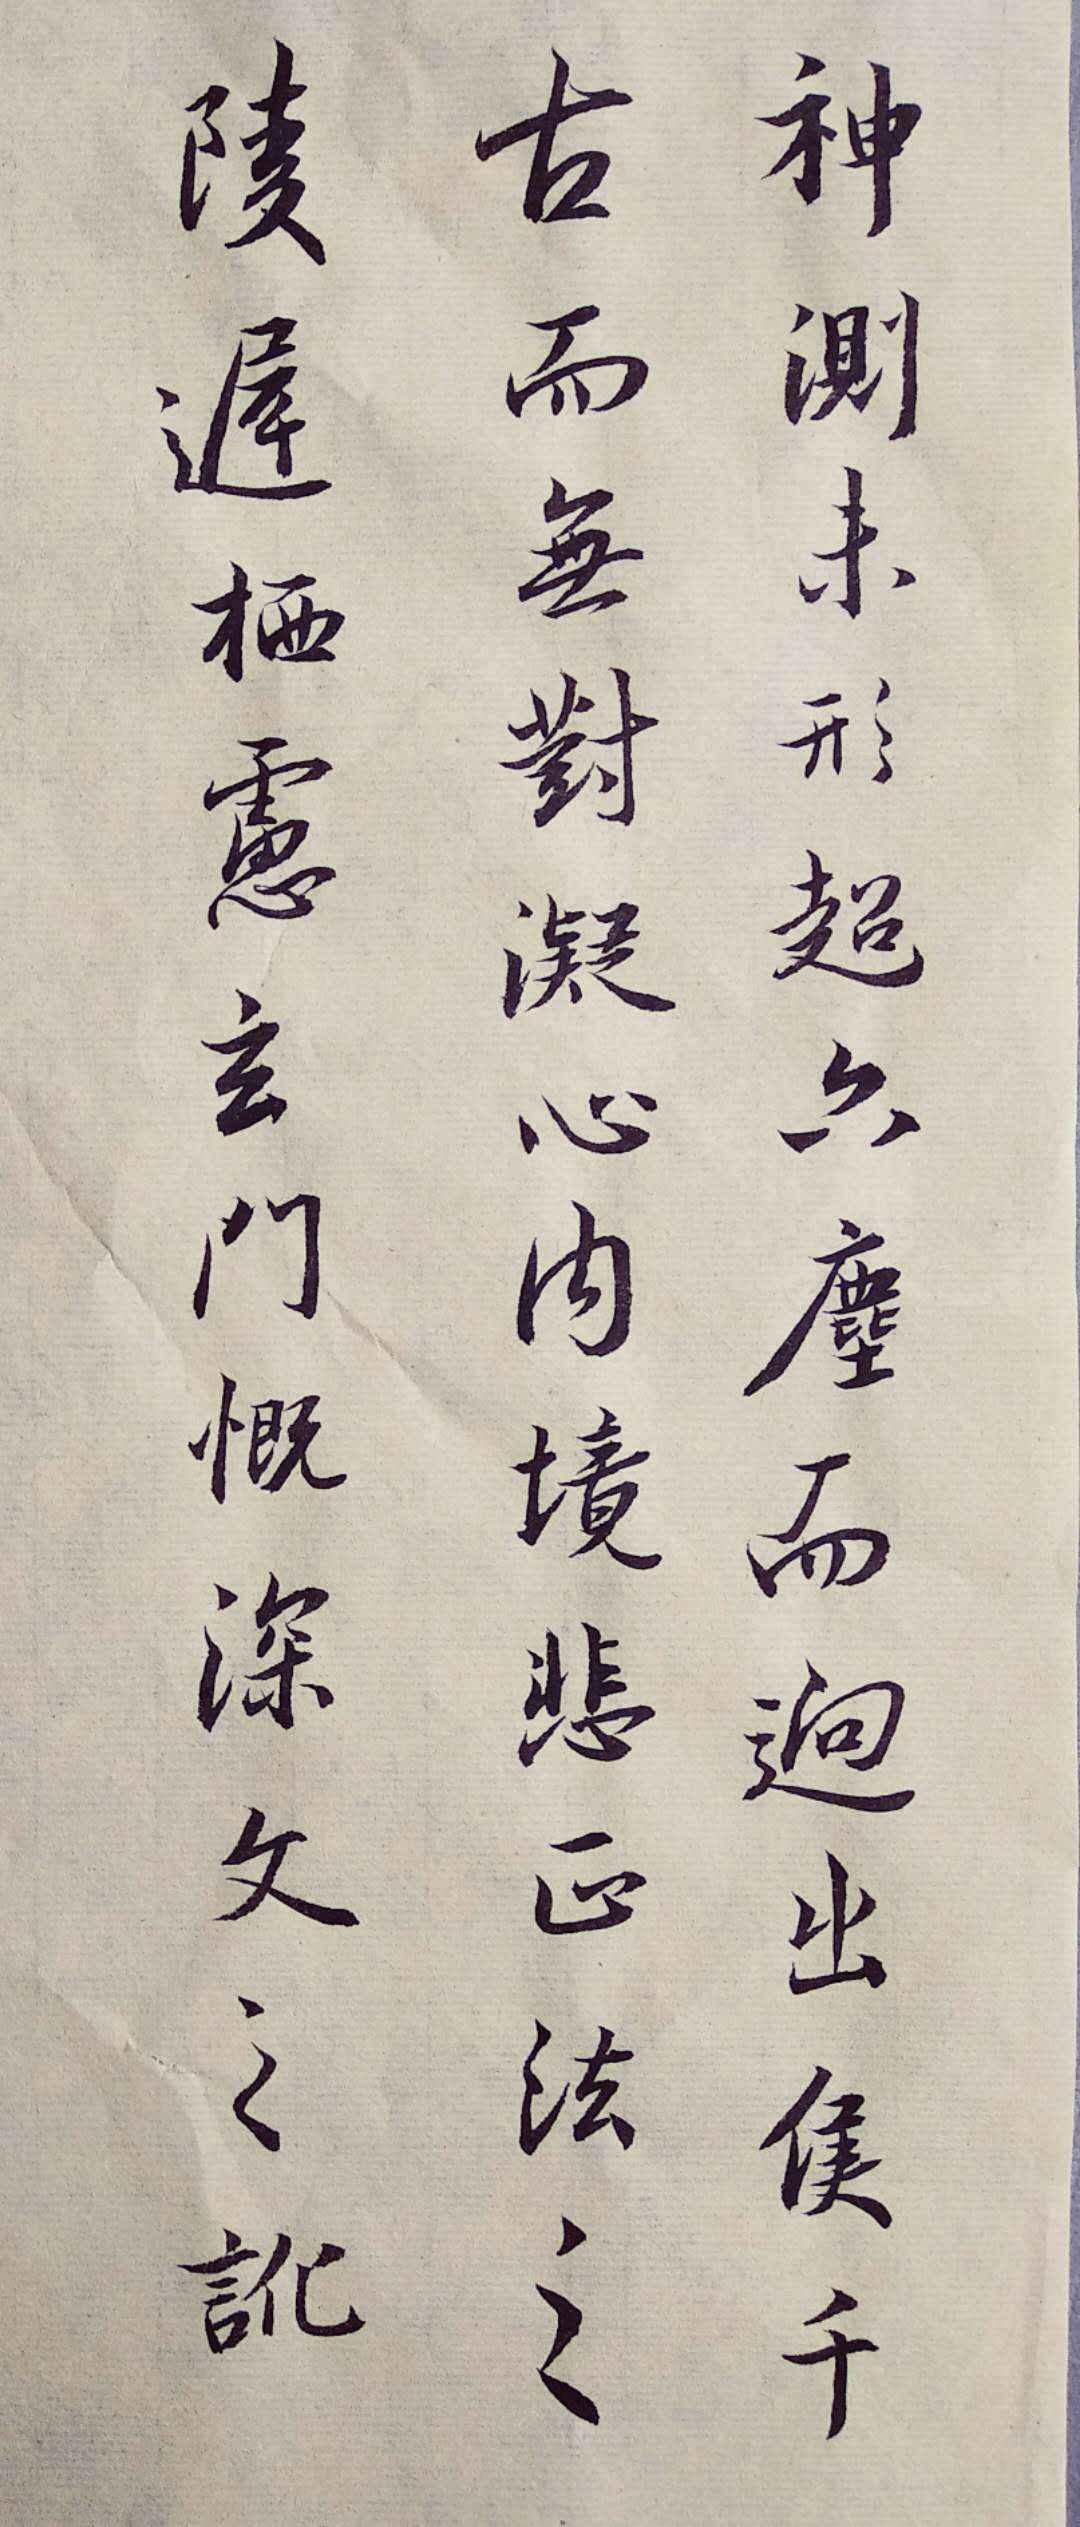 神測未形超六塵而迥出隻千
古而無對凝心內境悲正法之
陵遲栖慮玄門慨深文之訛